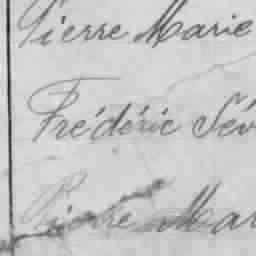 Pierre Marie
Frédéric Sév
Pierre Mar